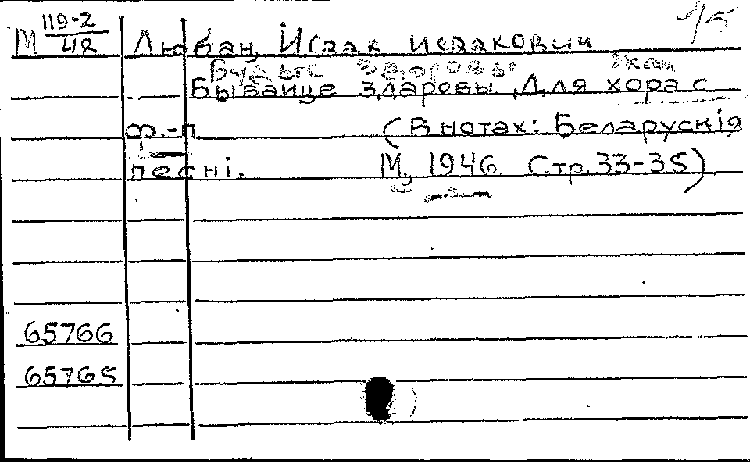 М 119-2/412 Любан, Исаак Исаакович
Будьте здоровы
Бывайце здаровы. Для хора с
ф.-п. (В нотах: Беларускія
песні. М, 1946 Стр. 33-35)
65766
65765